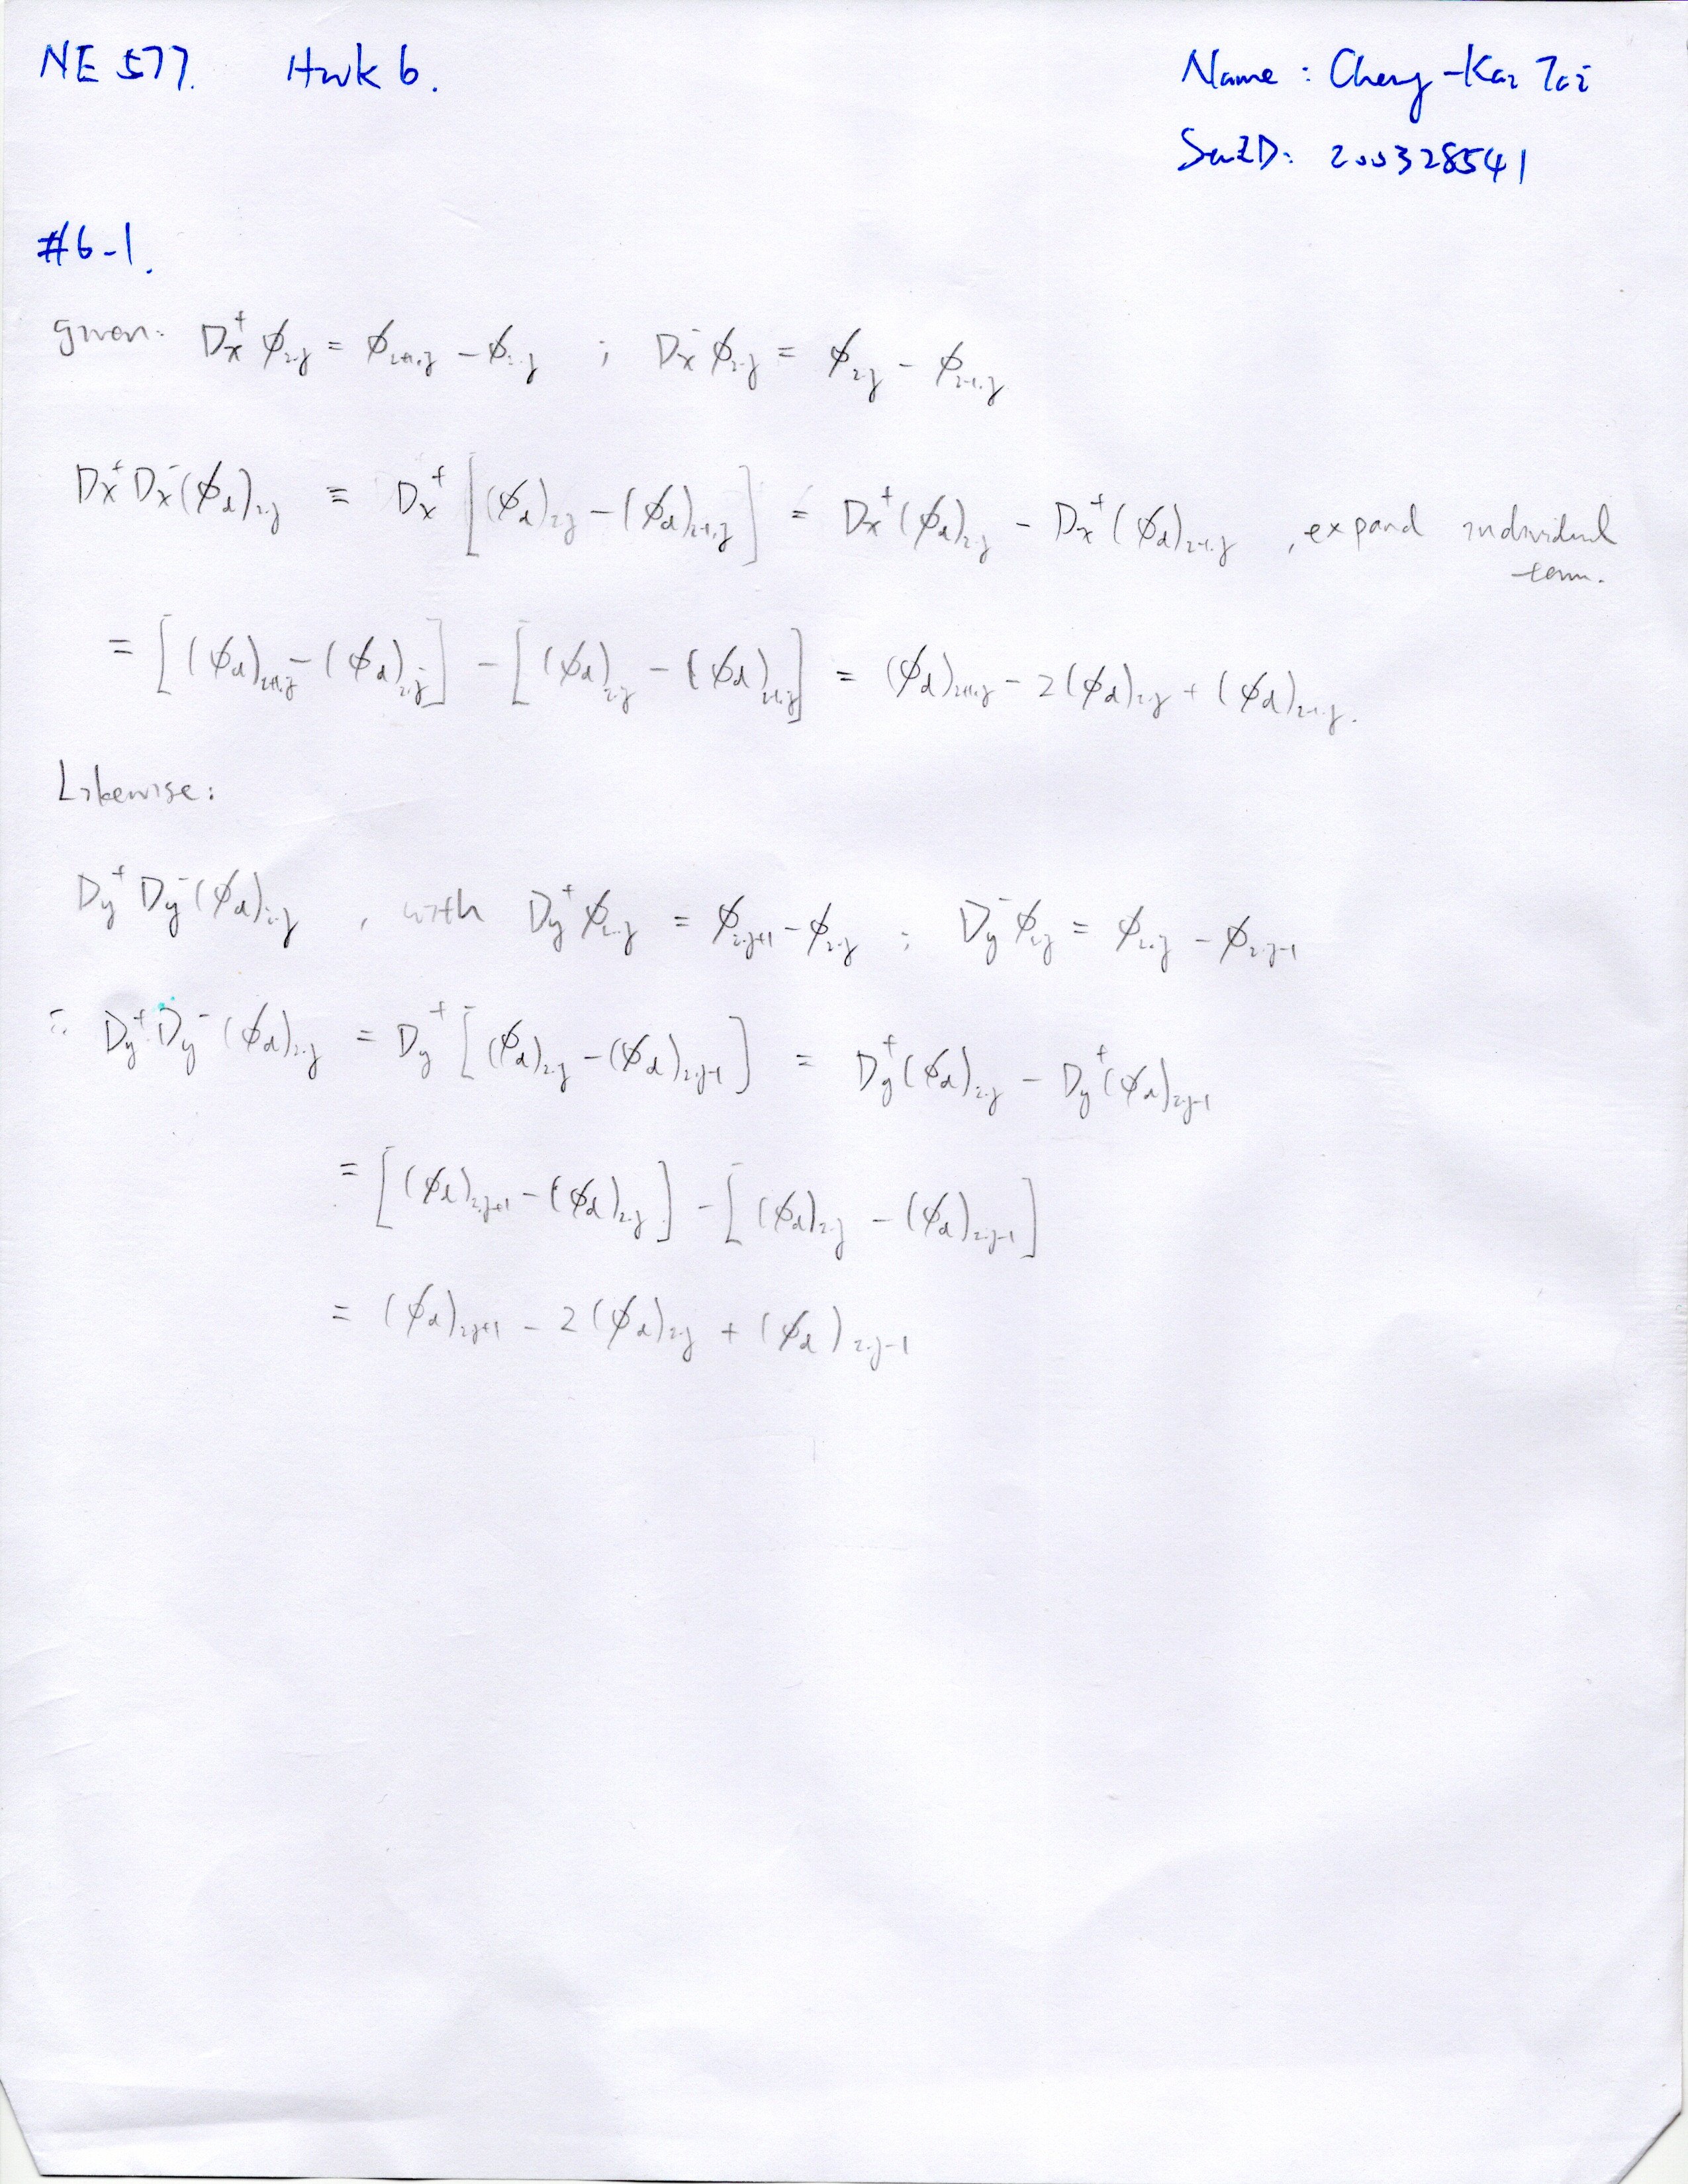 NE 577. Hwk 6.
Name: Cheng-Kai Tai
ID: 200328541
#6-1.
given: Dx⁺ ϕi,j = ϕi+1,j − ϕi,j ; Dx⁻ ϕi,j = ϕi,j − ϕi-1,j
Dx⁺Dx⁻(ϕd)i,j ≡ Dx⁺[(ϕd)i,j − (ϕd)i-1,j] = Dx⁺(ϕd)i,j − Dx⁺(ϕd)i-1,j , expand individual
term.
= [(ϕd)i+1,j − (ϕd)i,j] − [(ϕd)i,j − (ϕd)i-1,j] = (ϕd)i+1,j − 2(ϕd)i,j + (ϕd)i-1,j.
Likewise:
Dy⁺Dy⁻(ϕd)i,j , with Dy⁺ϕi,j = ϕi,j+1 − ϕi,j ; Dy⁻ϕi,j = ϕi,j − ϕi,j-1
∴ Dy⁺Dy⁻(ϕd)i,j = Dy⁺[(ϕd)i,j − (ϕd)i,j-1] = Dy⁺(ϕd)i,j − Dy⁺(ϕd)i,j-1
= [(ϕd)i,j+1 − (ϕd)i,j] − [(ϕd)i,j − (ϕd)i,j-1]
= (ϕd)i,j+1 − 2(ϕd)i,j + (ϕd)i,j-1